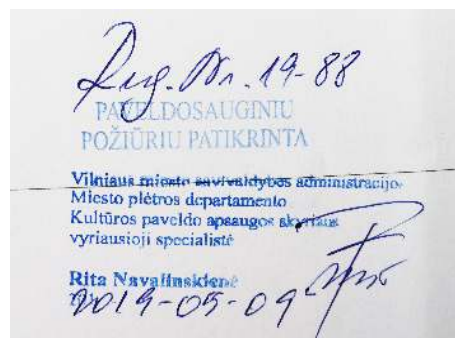 Reg. Nr. 19-88
PAVELDOSAUGINIU
POŽIŪRIU PATIKRINTA
Vilniaus miesto savivaldybės administracijos
Miesto plėtros departamento
Kultūros paveldo apsaugos skyriaus
vyriausioji specialistė
Rita Navalinskienė
2019-05-09